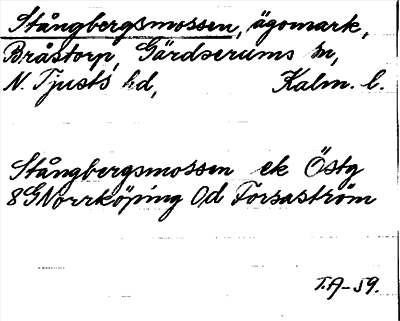 Stångbergsmossen, ägomark,
Bråstorp, Gärdserums sn,
N. Tjusts hd, Kalm. l.
Stångbergsmossen ek Östg
8G Norrköping 0d Forsaström
T.A-59.